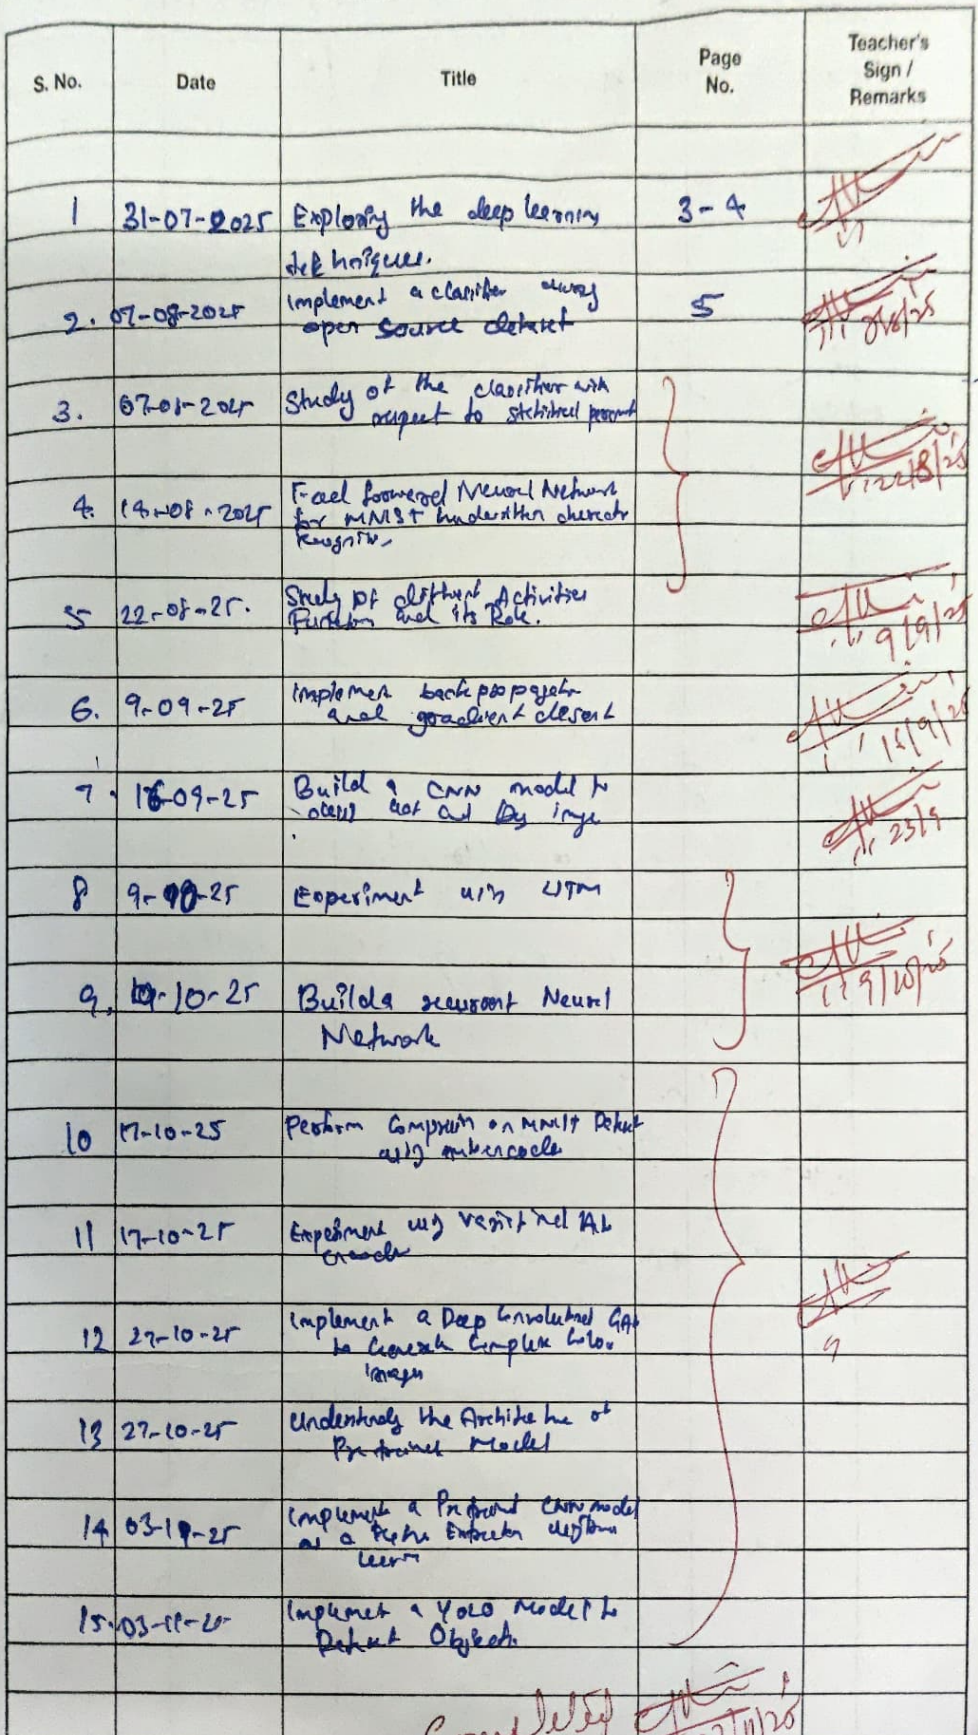 S. No. Date Title Page No. Teacher's Sign / Remarks
1 31-07-2025 Exploring the deep learning 3-4
techniques.
2. 07-08-2025 Implement a classifier using 5
open source dataset 8/8/25
3. 07-08-2025 Study of the classifier with
respect to statistical
22/8/25
4. 14-08-2025 Feed forward Neural Network
for MNIST handwritten character
5 22-08-25. Study of different Activities
Function and its Role. 9/9/25
6. 9-09-25 Implement back propagate
and gradient descent 16/9/25
7. 16-09-25 Build a CNN model to
cat and Dog image 23/9
8 9-10-25 Experiment
9. 10-25 Build a recurrent Neural 9/10/25
Network
10 17-10-25 Perform on MNIST Dataset
11 17-10-25 Experiment
12 27-10-25 Implement a Deep Convolutional GAN
to Generate Complex Color
images
13 27-10-25 Understanding the Architecture of
Model
14 03-11-25 Implement a CNN model
as a
15. 03-11-25 Implement a YOLO Model to
Detect Objects.
Completed